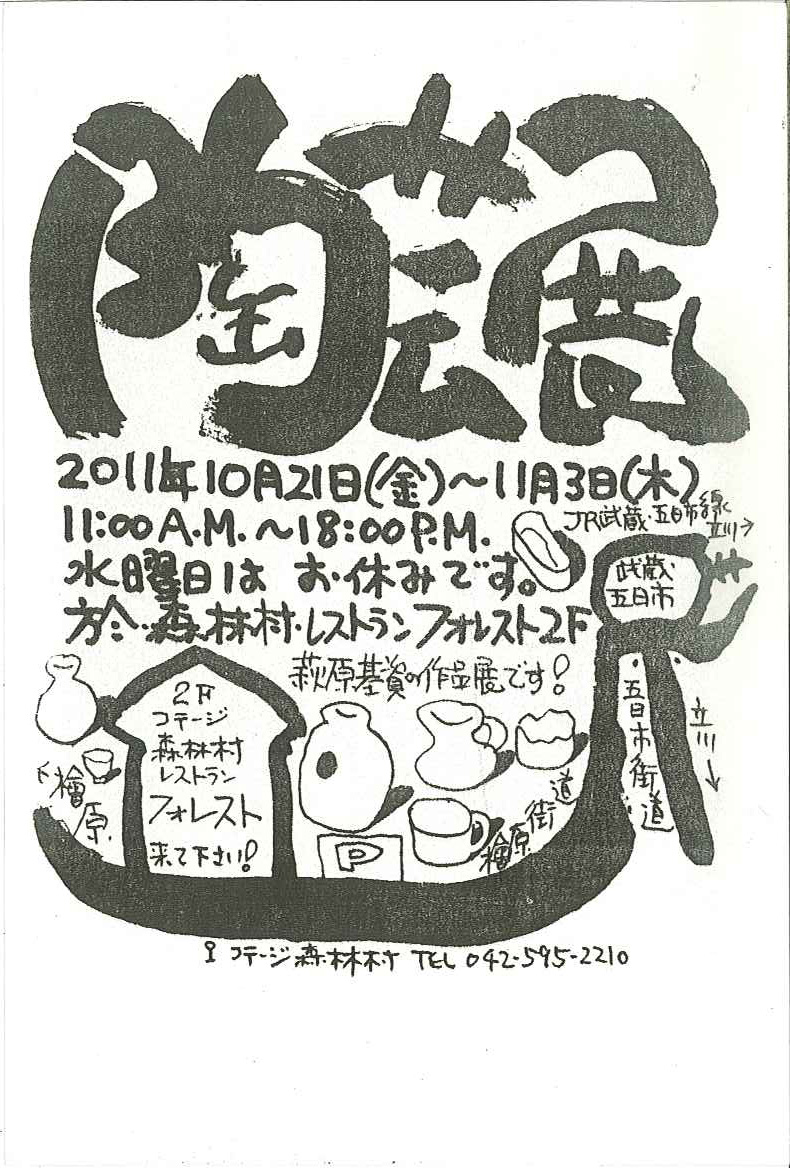 陶芸展
2011年10月21日(金)～11月3日(木)
11:00A.M.～18:00P.M.
水曜日は お休みです。
方於・森林村・レストランフォレスト2F
JR武蔵・五日市線
立川→
武蔵・五日市
萩原基資の作品展です!
五日市街道
立川→
2F
コテージ
森林村
レストラン
フォレスト
来て下さい!
檜原
P
檜原街道
コテージ森林村 TEL 042-595-2210